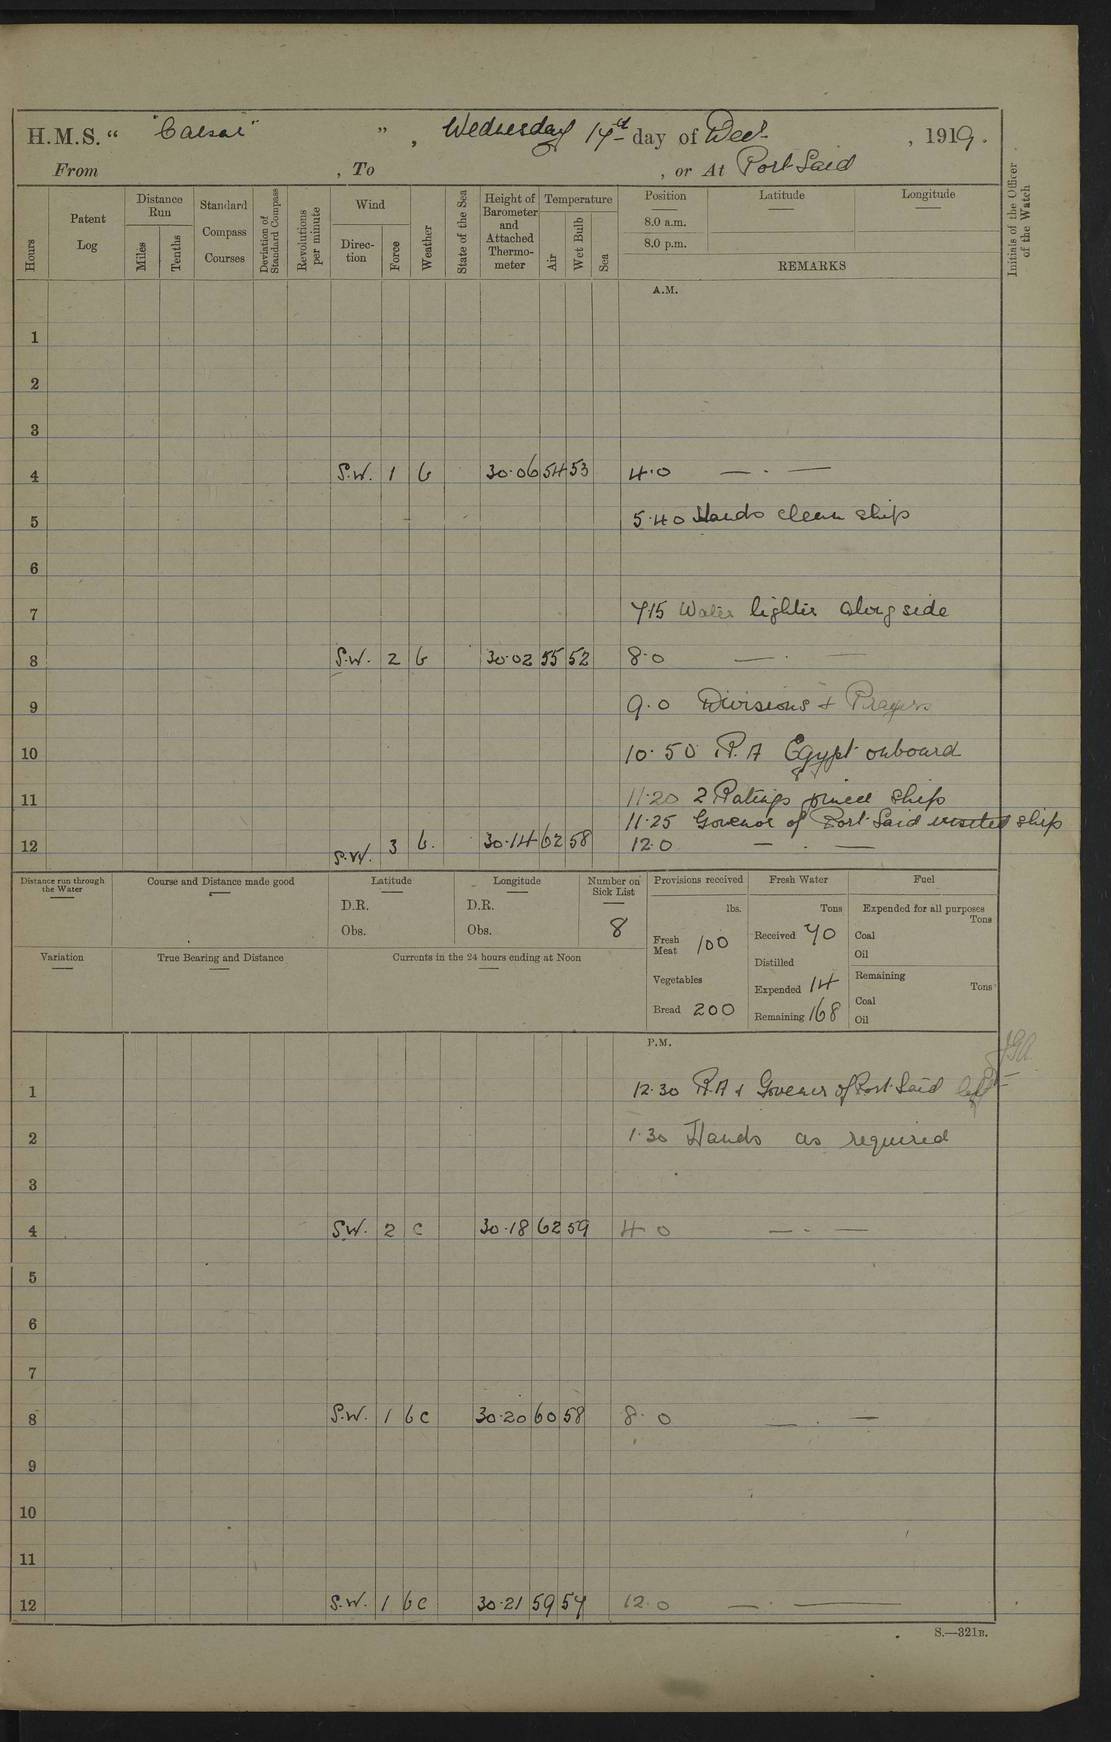 H.M.S. “ "Caesar" ” , Wednesday 17th day of Decr , 1919.
From , To , or At Port Said
Hours
Patent Log
Distance Run
Miles
Tenths
Standard Compass Courses
Deviation of Standard Compass
Revolutions per minute
Wind
Direction
Force
Weather
State of the Sea
Height of Barometer and Attached Thermometer
Temperature
Air
Wet Bulb
Sea
Position Latitude Longitude
8.0 a.m.
8.0 p.m.
REMARKS
Initials of the Officer of the Watch
A.M.
1
2
3
4 S.W. 1 b 30·06 54 53 4·0 — · —
5 5·40 Hands clean ship
6
7 715 Water lighter along side
8 S.W. 2 b 30·02 55 52 8·0 — · —
9 9·0 Divisions & Prayers
10 10·50 R.A Egypt onboard
11 11·20 2 Ratings joined ship
11·25 Govenor of Port Said visited ship
12 S.W. 3 b. 30·14 62 58 12·0 — · —
Distance run through the Water
Course and Distance made good
Latitude
D.R.
Obs.
Longitude
D.R.
Obs.
Number on Sick List
8
Provisions received
lbs.
Fresh Meat 100
Vegetables
Bread 200
Fresh Water
Tons
Received 70
Distilled
Expended 14
Remaining 168
Fuel
Expended for all purposes
Tons
Coal
Oil
Remaining
Tons
Coal
Oil
Variation
True Bearing and Distance
Currents in the 24 hours ending at Noon
P.M.
1 12·30 R.A & Govenor of Port Said left
2 1·30 Hands as required
3
4 S.W. 2 c 30·18 62 59 4 0 — · —
5
6
7
8 S.W. 1 bc 30·20 60 58 8· 0 — · —
9
10
11
12 S.W. 1 bc 30·21 59 57 12·0 — · —
S.—321B.